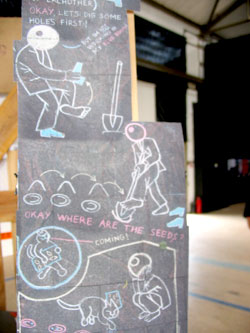 EACHOTHER)
OKAY, LETS DIG SOME
HOLES FIRST!
OKAY WHERE ARE THE SEEDS?
COMING!